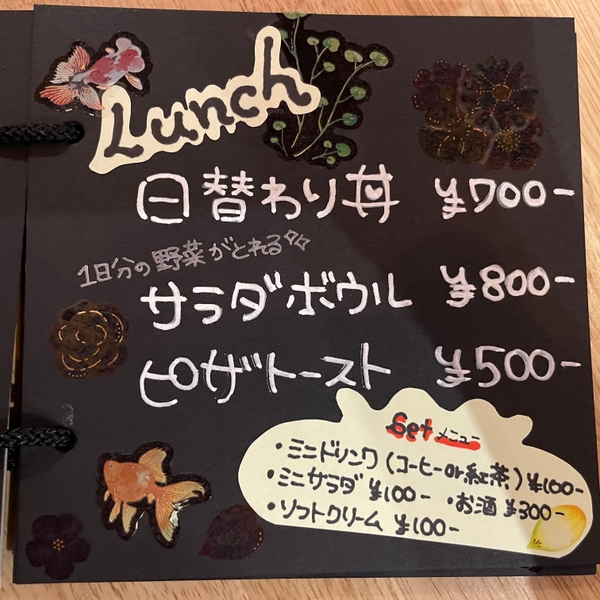 Lunch
日替わり丼 ¥700-
1日分の野菜がとれる
サラダボウル ¥800-
ピザトースト ¥500-
Set メニュー
・ミニドリンク(コーヒーor紅茶)¥100-
・ミニサラダ ¥100- ・お酒 ¥300-
・ソフトクリーム ¥100-